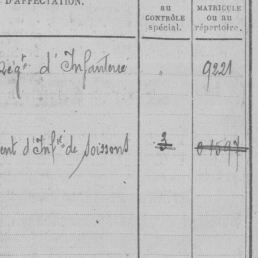 D'AFFECTATION.
AU
CONTRÔLE
spécial.
MATRICULE
ou au
répertoire.
Régt d'Infanterie 9221
ent d'Infie de Soissons 3 01597